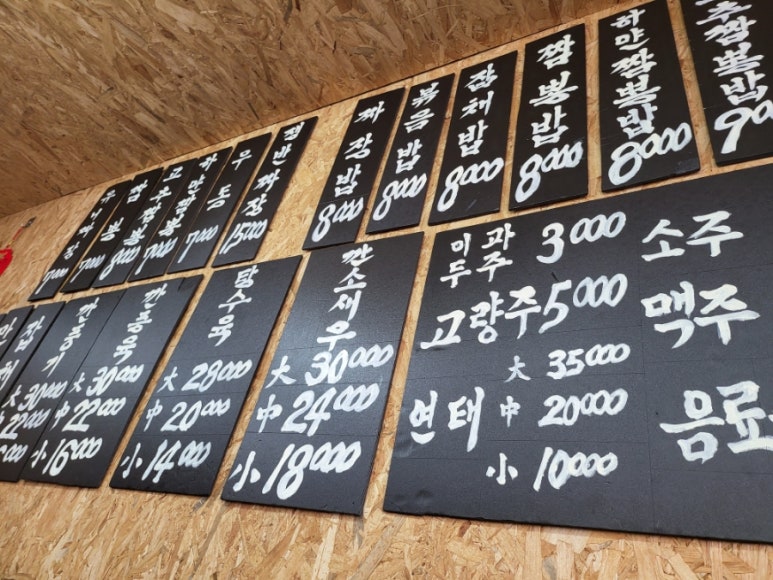 짬뽕
고추짬뽕
하얀짬뽕
우동
쟁반짜장 15000
짜장밥 8000
볶음밥 8000
잡채밥 8000
짬뽕밥 8000
하얀짬뽕밥 8000
추짬뽕밥
깐풍기
大 30000
中 22000
깐풍육
大 30000
中 22000
小 16000
탕수육
大 28000
中 20000
小 14000
깐소새우
大 30000
中 24000
小 18000
이과두주 3000
고량주 5000
연태
大 35000
中 20000
小 10000
소주
맥주
음료